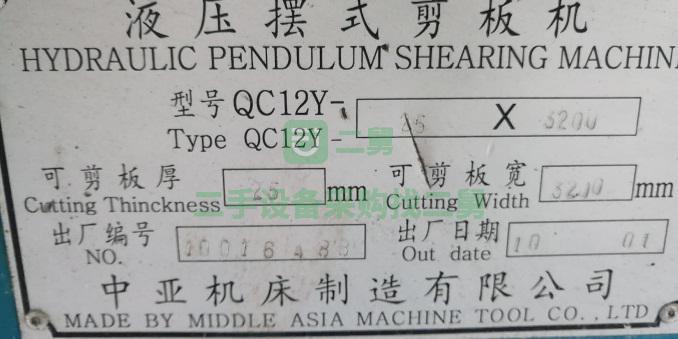 液压摆式剪板机
HYDRAULIC PENDULUM SHEARING MACHIN
型号 QC12Y-
Type QC12Y - 25 X 3200
二舅
可剪板厚 可剪板宽
Cutting Thinckness 25 mm Cutting Width 3200 mm
二手设备采购找二舅
出厂编号 出厂日期
NO. Out date 10 01
中亚机床制造有限公司
MADE BY MIDDLE ASIA MACHINE TOOL CO.,LTD